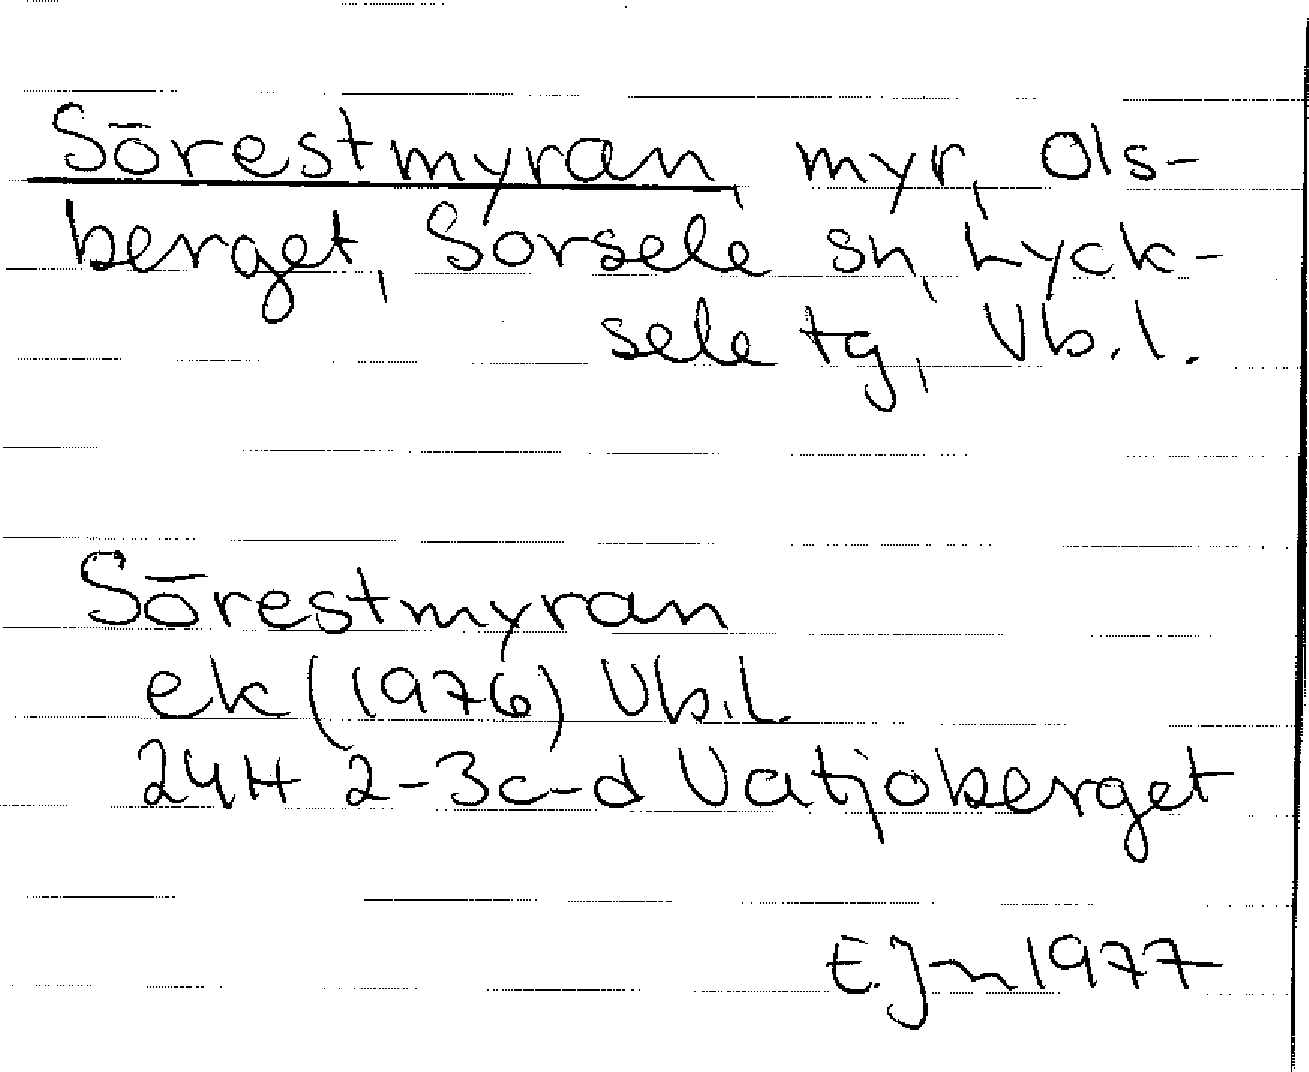 Sörestmyran, myr, Ols-
berget, Sorsele sn, Lyck-
sele tg, Vb.l.
Sörestmyran
ek (1976) Vb.l.
24H 2-3c-d Vatjoberget
E.Jn 1977